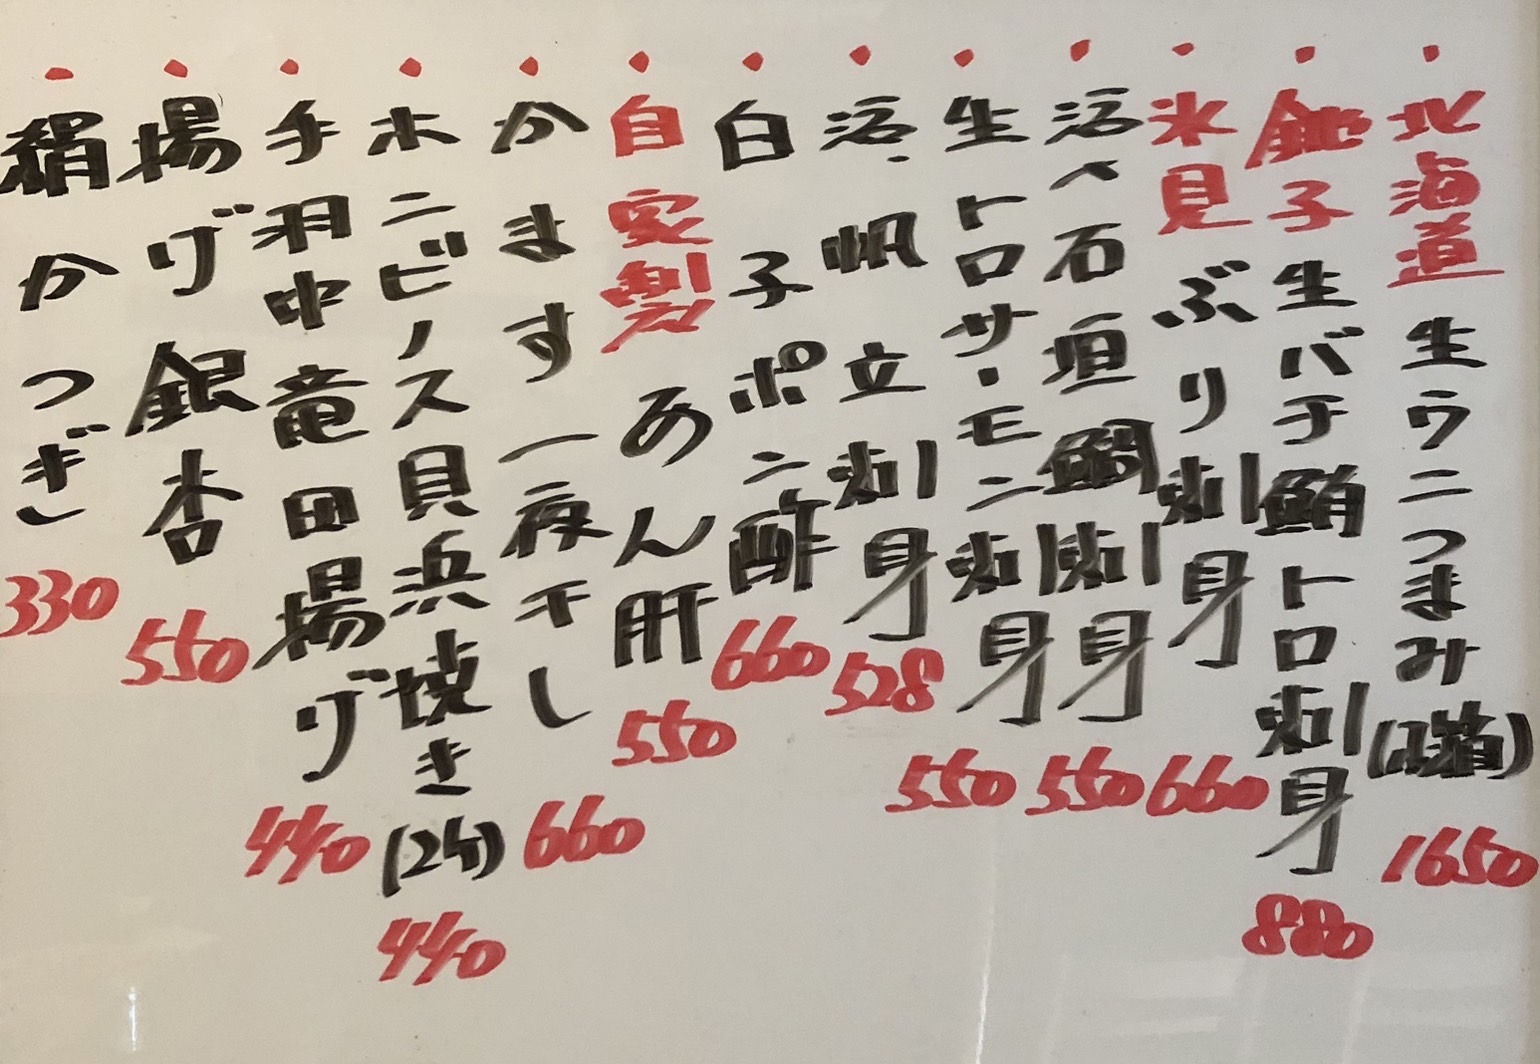 ・北海道 生ウニつまみ(1箱) 1650
・銚子 生バチ鮪トロ刺身 880
・氷見 ぶり刺身 660
・活〆石垣鯛刺身 550
・生トロサーモン刺身 550
・活帆立刺身 528
・白子ポン酢 660
・自家製 あん肝 550
・かます一夜干し 660
・ホンビノス貝浜焼き(2ケ) 440
・手羽中竜田揚げ 440
・揚げ銀杏 550
・絹かつぎ 330